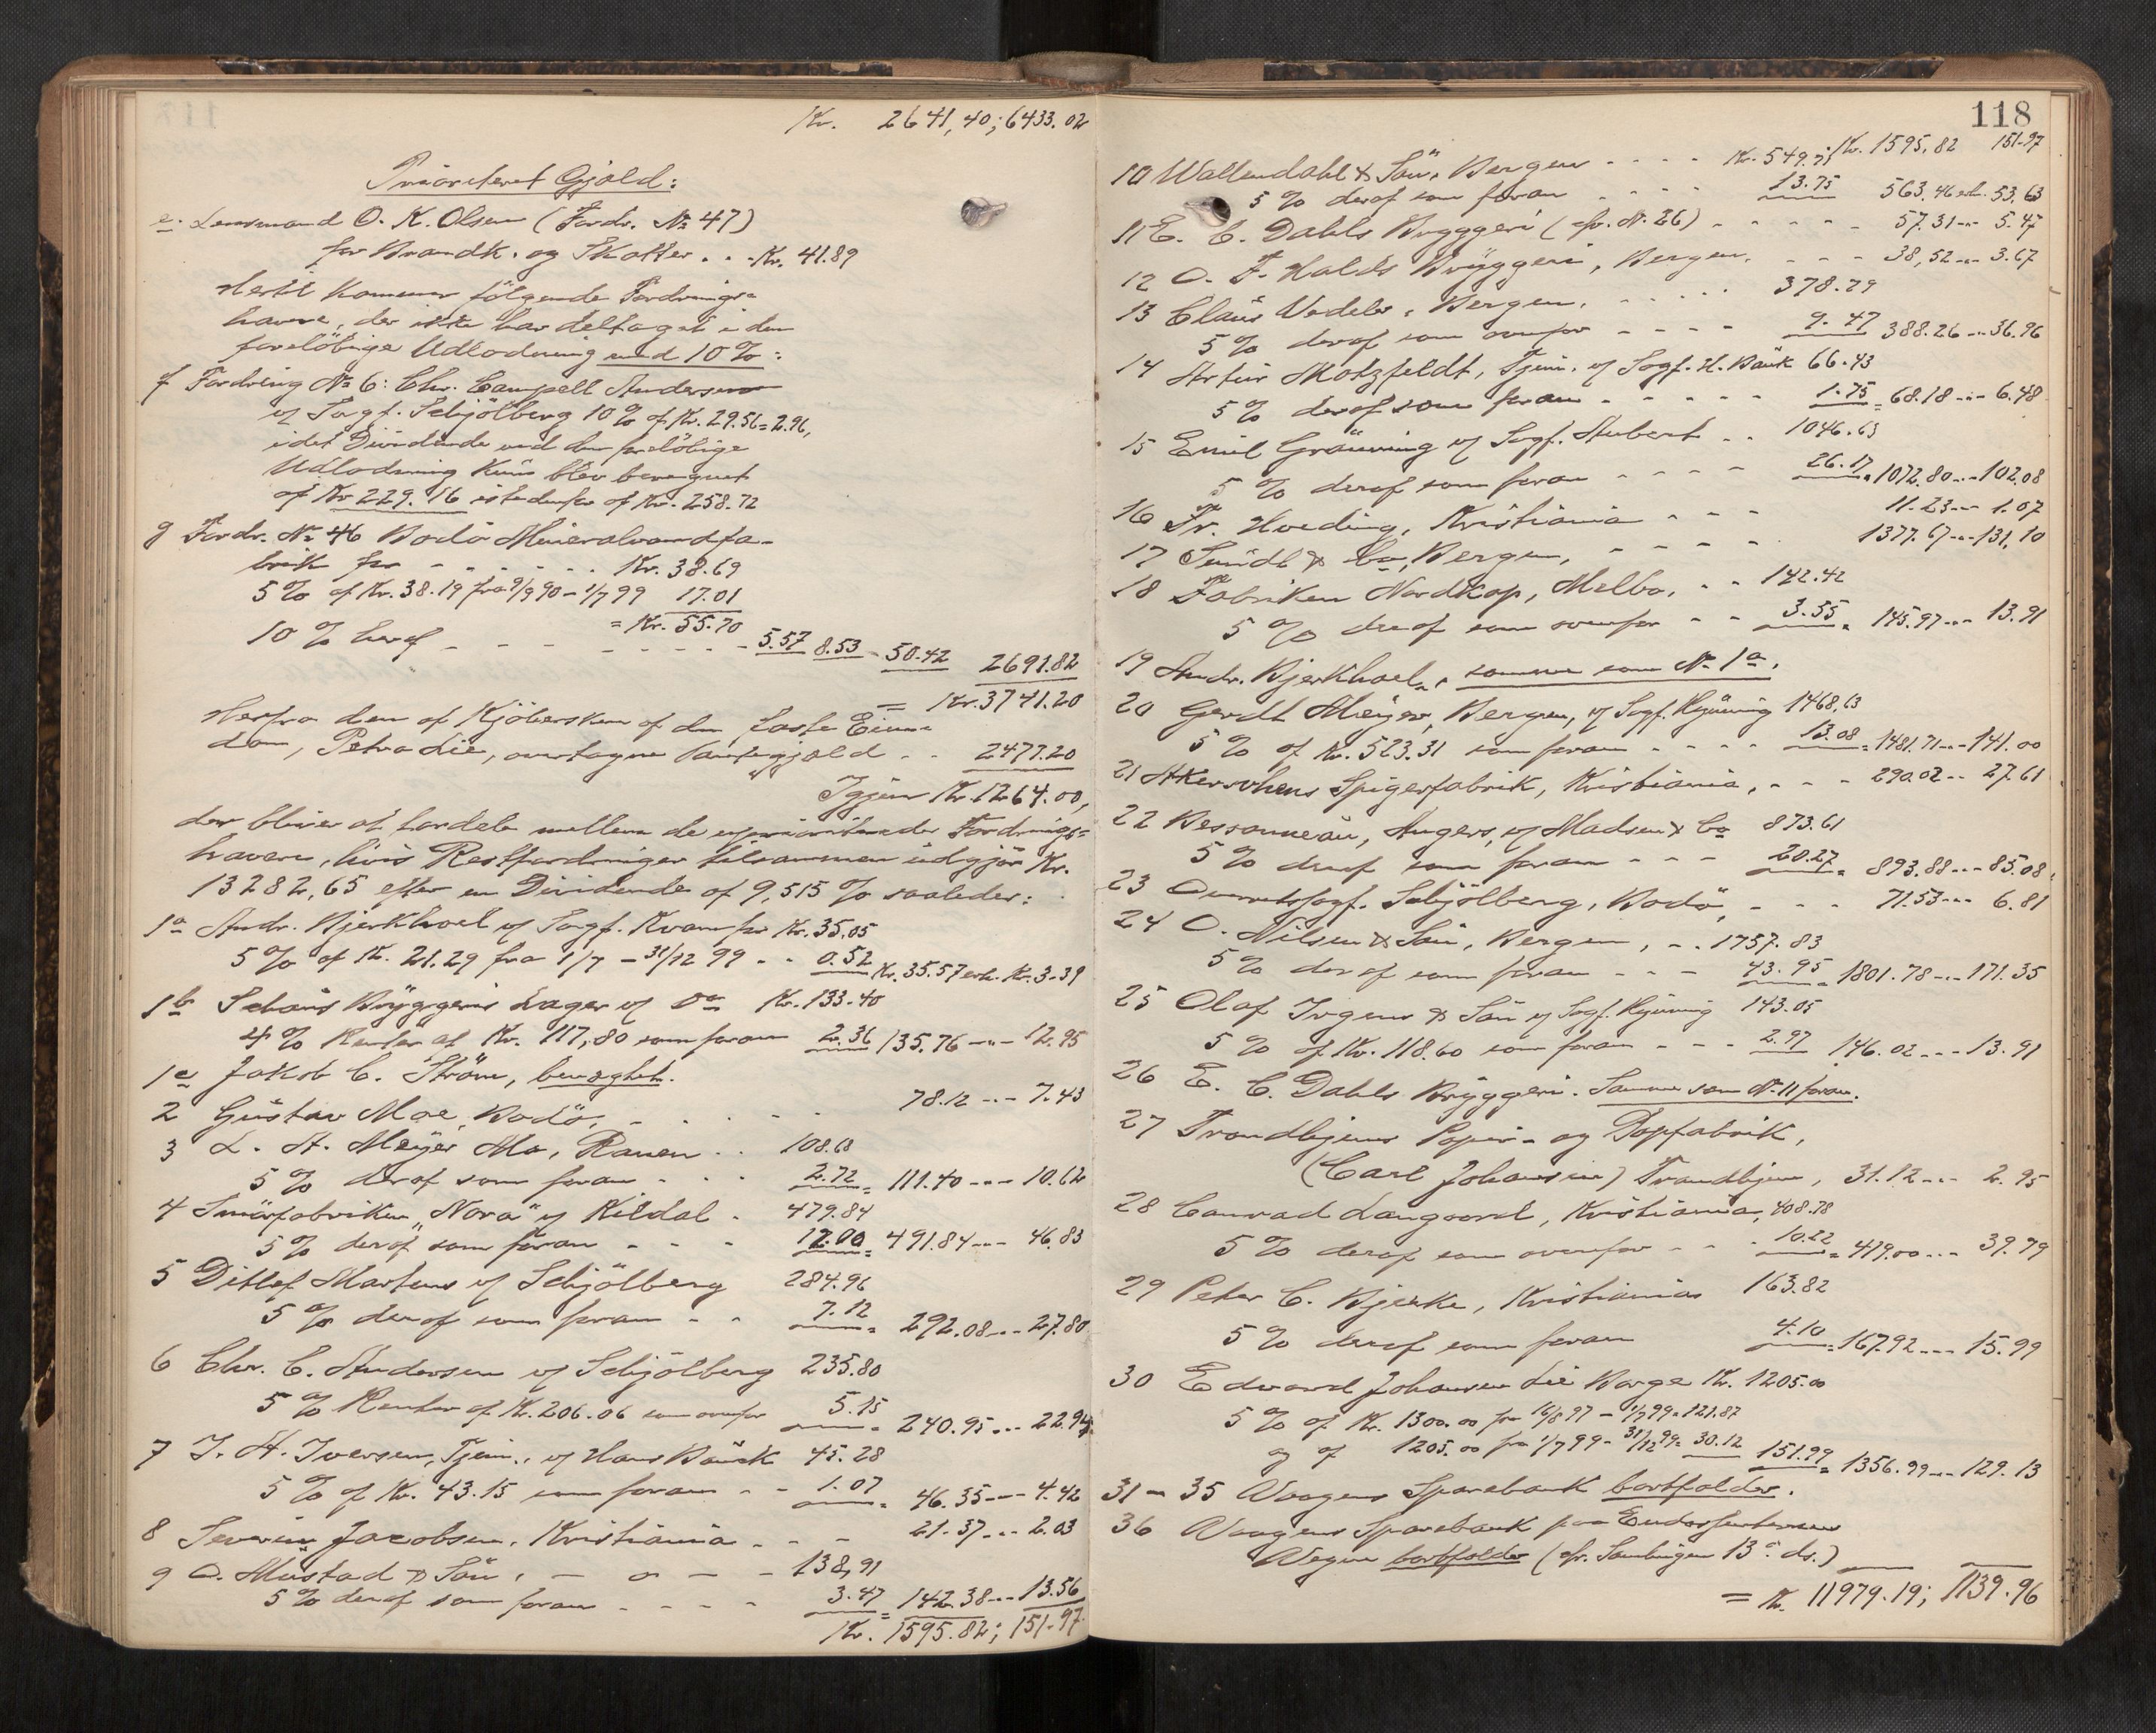 Kr. 2641,40; 6433.02
Prioriteret Gjæld:
e. Lensmand O. K. Olsen (Fordr. № 47)
for Brandk. og Skatter . . . Kr. 41.89
Hertil kommer følgende Fordrings-
havere, der ikke har deltaget i den
foreløbige Udlodning med 10 %:
f Fordring № 6: Chr. Campell Andersen
v/ Sagf. Schjölberg 10 % af Kr. 29.56 = 2.96,
idet Dividende ved den foreløbige
Udlodning kun blev beregnet
af Kr 229.16 istedenfor af Kr. 258.72
g Fordr. № 46 Bodö Mineralvandfa-
brik for - - - - - Kr. 38.69
5 % af Kr. 38.19 fra 9/9 90 - 1/7 99 17.01
= Kr. 55.70
10 % heraf - - - - - - - 5.57 8.53 - 50.42 2691.82
= Kr. 3741.20
Herfra den af Kjöbersken af den faste Eien-
dom, Petra Lie, overtagne Pantegjæld . . 2477.20
Igjen Kr. 1264.00,
der bliver at fordele mellem de uprioriterede Fordrings-
havere, hvis Restfordringer tilsammen udgjør Kr.
13282,65 efter en Dividende af 9,515 % saaledes:
1a Andr. Bjerkhoel v/ Sagf. Kvam for Kr. 35.05
5 % af Kr. 21.29 fra 1/7 - 31/12 99 . . 0.52 Kr. 35.57 erh. Kr. 3.39
1b Schous Bryggeris Lager v/ Do Kr. 133.40
4 % Renter af Kr. 117,80 som foran 2.36 135.76 -"- 12.95
1c Jakob C. Ström, benegtet.
2 Gustav Moe, Bodö, - . . . - 78.12 -"- 7.43
3 L. A. Meyer Mo, Ranen . . 108.68
5 % deraf som foran - . . 2.72 = 111.40 -"- 10.62
4 Smörfabriken "Nora" v/ Kildal . 479.84
5 % deraf som foran - - - 12.00 = 491.84 -"- 46.83
5 Ditlef Martens v/ Schjölberg 284.96
5 % deraf som foran - - 7.12 = 292.08 -"- 27.80
6 Chr. C. Andersen v/ Schjölberg 235.80
5 % Renter af Kr. 206.06 som ovenfor 5.15 = 240.95 -"- 22.94
7 J. H. Iversen, Tjem., v/ Hans Bauck 45.28
5 % af Kr. 43.15 som foran - - 1.07 = 46.35 -"- 4.42
8 Severin Jacobsen, Kristiania - - - 21.37 -"- 2.03
9 O. Mustad & Sön, - o - - 138,91
5 % deraf som foran - - - - 3.47 = 142.38 -"- 13.56
Kr. 1595.82; 151.97
118
Kr. 1595.82 151.97
10 Wallendahl & Sön, Bergen - - - - Kr. 549.71
5 % deraf som foran - - - - 13.75 563.46 erh. 53.63
11 E. C. Dahls Bryggeri (cfr. № 26) - - - - - 57.31 -"- 5.47
12 O. F. Halds Bryggeri, Bergen, - - - 38,52 -"- 3.67
13 Claus Wedeler, Bergen, - - - - . 378.79
5 % deraf som ovenfor - - - - 9.47 388.26 -"- 36.96
14 Artur Motzfeldt, Tjem. v/ Sagf. H. Bauk 66.43
5 % deraf som foran - - - - - 1.75 = 68.18 -"- 6.48
15 Emil Gräuning v/ Sagf. Aubert . . 1046.63
5 % deraf som foran - - - - 26.17 = 1072.80 -"- 102.08
16 Fr. Hoeding, Kristiania - - - 11.23 -"- 1.07
17 Sundt & Co, Bergen, - - - - - 1377.67 -"- 131,10
18 Fabriken Nordkap, Melbo, . . 142.42
5 % deraf som ovenfor - - 3.55 = 145.97 -"- 13.91
19 Andr. Bjerkhoel, samme som № 1a.
20 Gerdt Meyer, Bergen, v/ Sagf. Hyïning 1468,63
5 % af Kr. 523.31 som foran - - - - 13.08 = 1481.71 -"- 141.00
21 Akerselvens Spigerfabrik, Kristiania, - - - 290.02 -"- 27.61
22 Bessonneau, Angers, v/ Madsen & Co 873.61
5 % deraf som foran - - - 20.27 = 893.88 -"- 85.08
23 Overretssagf. Schjölberg, Bodö, - - - 71.53 -"- 6.81
24 O. Nilsen & Sön, Bergen, - . 1757.83
5 % deraf som foran - - - 43.95 = 1801.78 -"- 171.35
25 Olaf Irgens & Sön v/ Sagf. Hyïning 143.05
5 % af Kr. 118.60 som foran - - - 2.97 146.02 -"- 13.91
26 E. C. Dahls Bryggeri. Samme som № 11 foran.
27 Trondhjems Papir- og Papfabrik,
(Carl Johansen) Trondhjem, 31.12 -"- 2.95
28 Conrad Langaard, Kristiania, 408.78
5 % deraf som ovenfor - - - 10.22 = 419.00 -"- 39.79
29 Peter C. Bjerke, Kristiania 163.82
5 % deraf som foran 4.10 = 167.92 -"- 15.99
30 Edvard Johansen Lie Borge Kr. 1205.00
5 % af Kr. 1300.00 fra 16/8 97 - 1/7 99 = 121.87
og af 1205.00 fra 1/7 99 - 31/12 99 = 30.12 151.99 = 1356.99 -"- 129.13
31 - 35 Vaagens Sparebank bortfalder.
36 Vaagens Sparebank paa
Vegne bortfalder (cfr. Samlingen 13de ds.)
= Kr. 11979.19; 1139.96